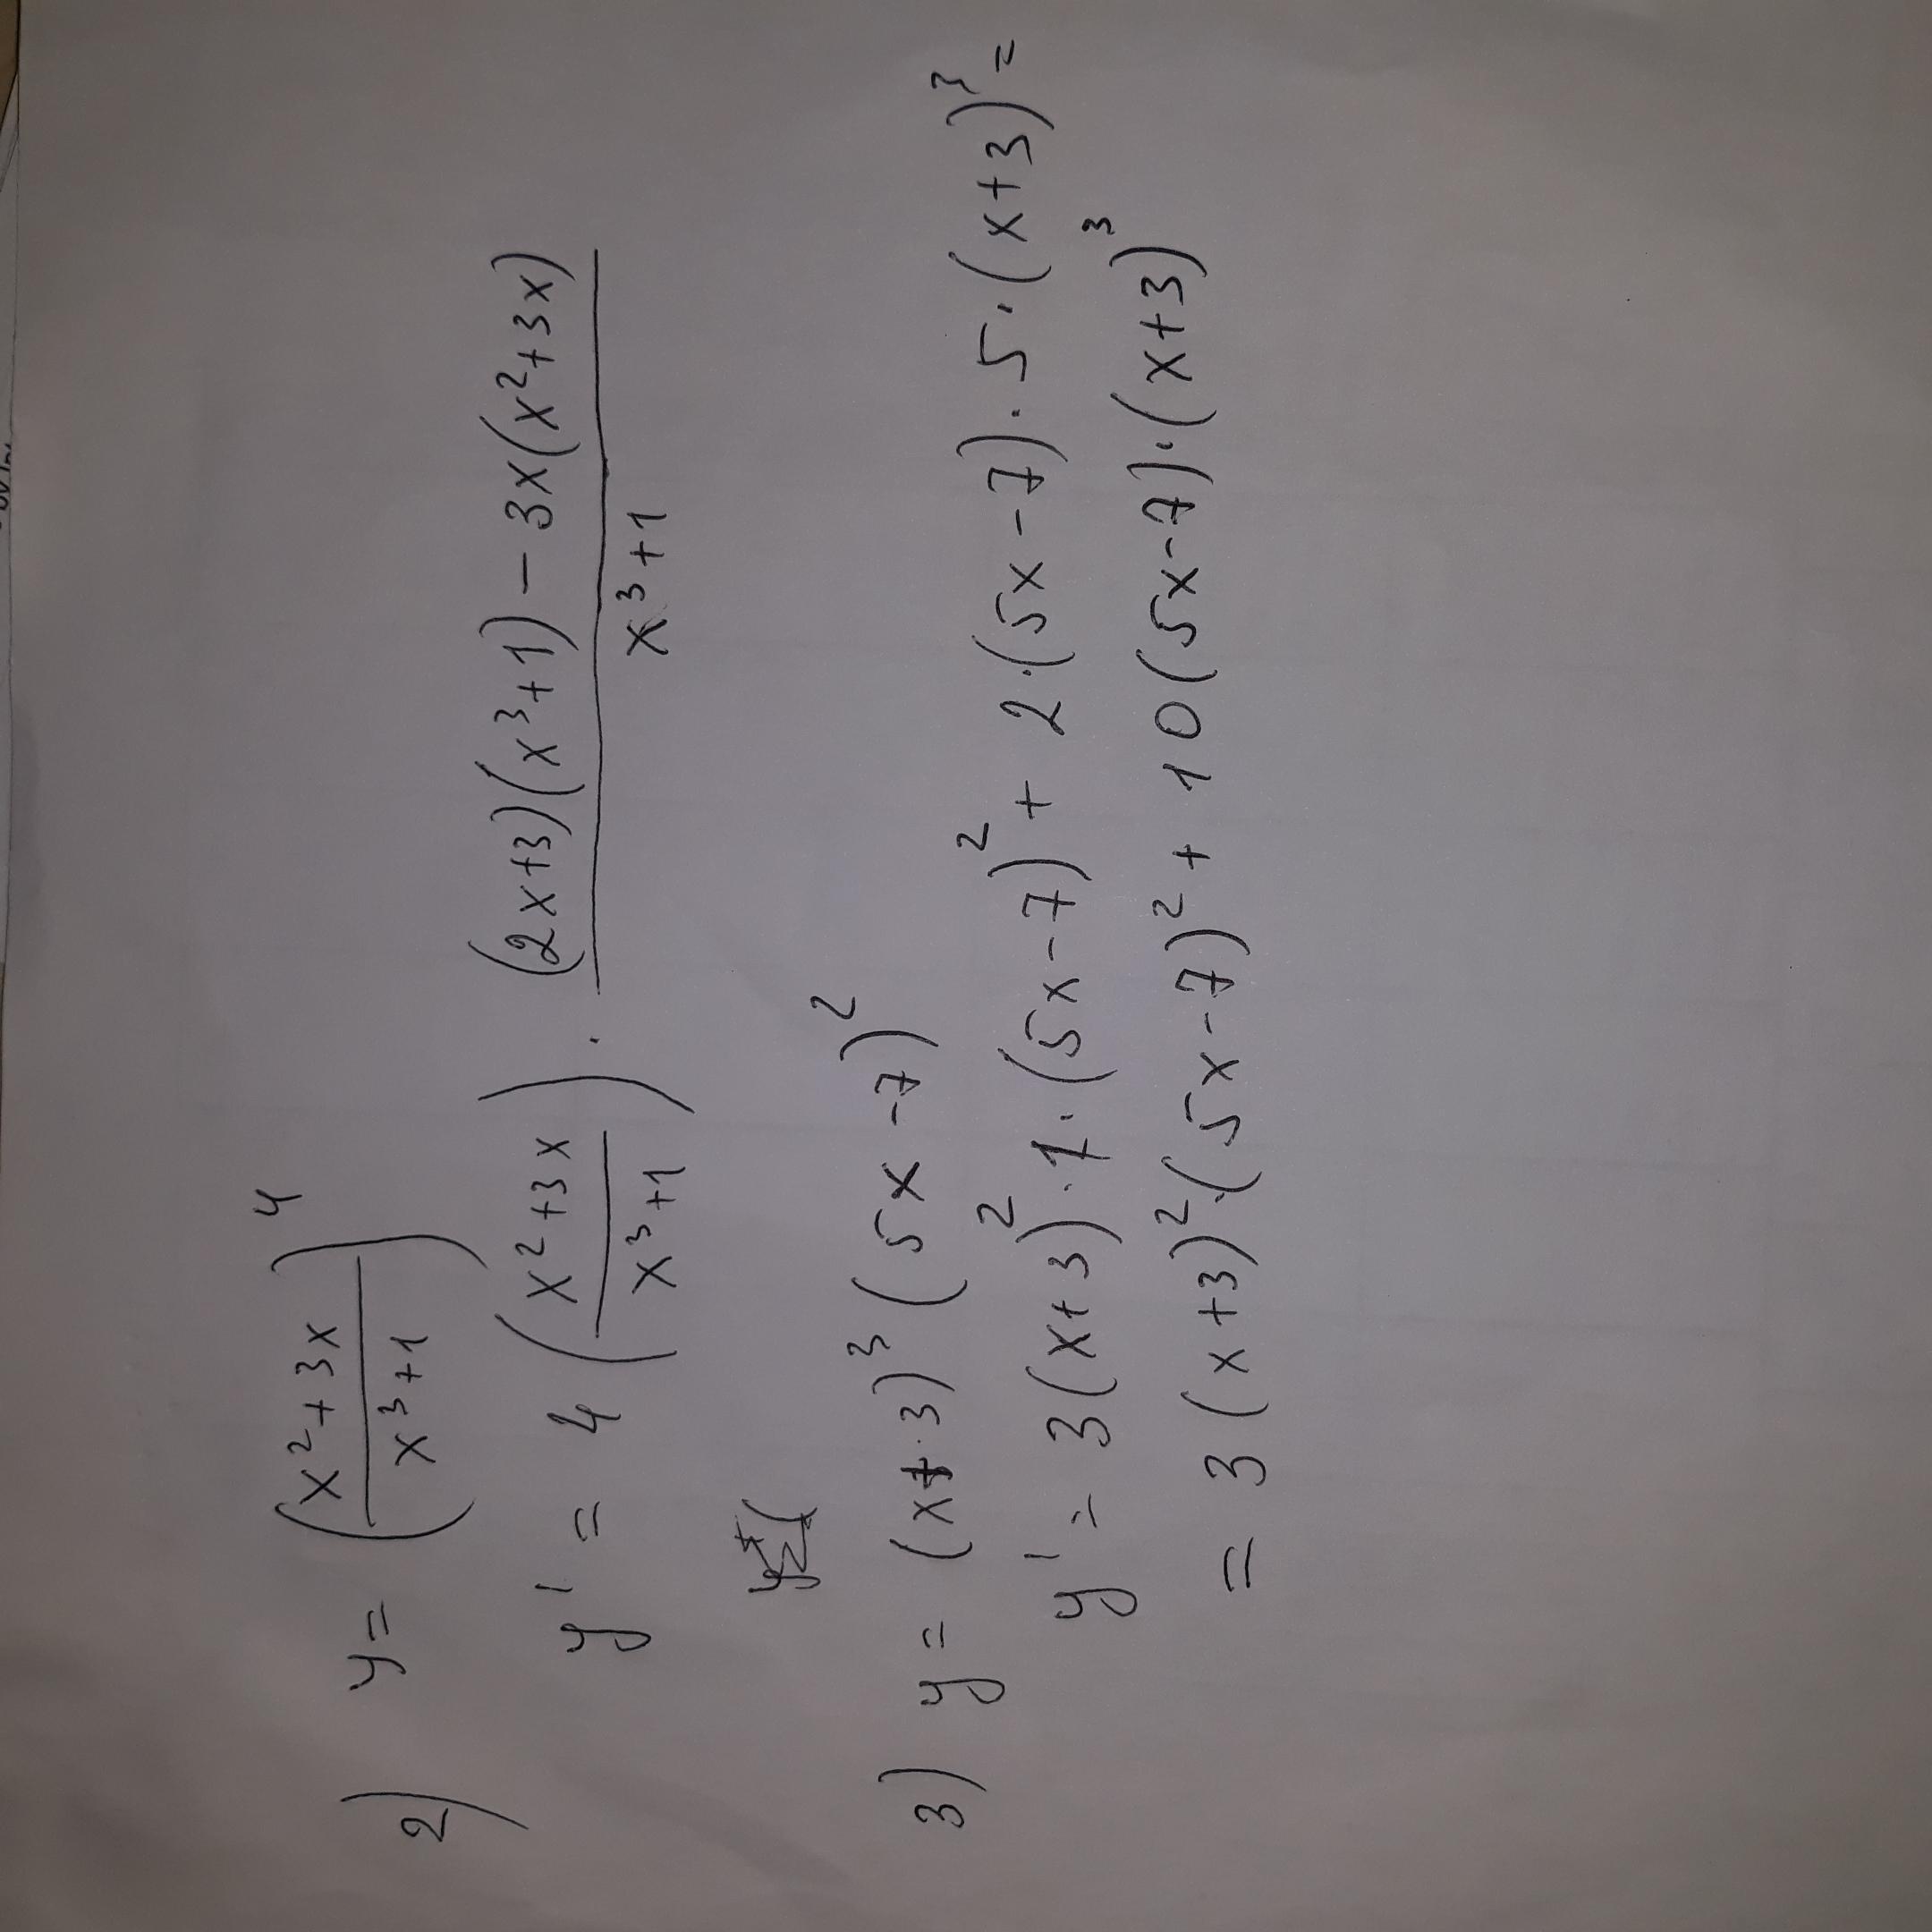 2) y = ((x²+3x)/(x³+1))⁴
y' = 4 ((x²+3x)/(x³+1)) · ((2x+3)(x³+1) – 3x(x²+3x))/(x³+1)
3) y = (x+3)³ (5x-7)²
y' = 3(x+3)² · 1 · (5x-7)² + 2·(5x-7) · 5 · (x+3)³ =
= 3(x+3)²·(5x-7)² + 10(5x-7)·(x+3)³